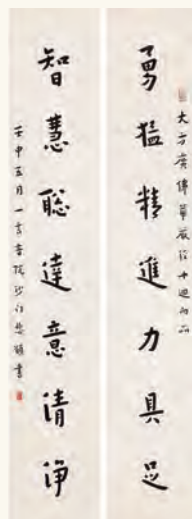 大方廣佛華嚴經十迴向品
勇猛精進力具足
智慧聰達意清淨
壬申五月一音 沙門 書